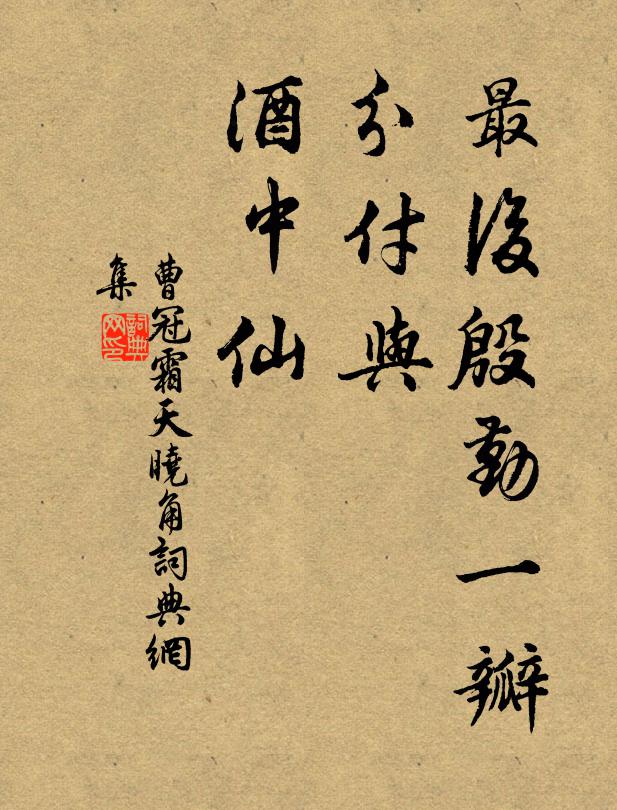 最後殷勤一瓣
分付與
酒中仙
曹冠霜天曉角詞典網
集
詞典
网印